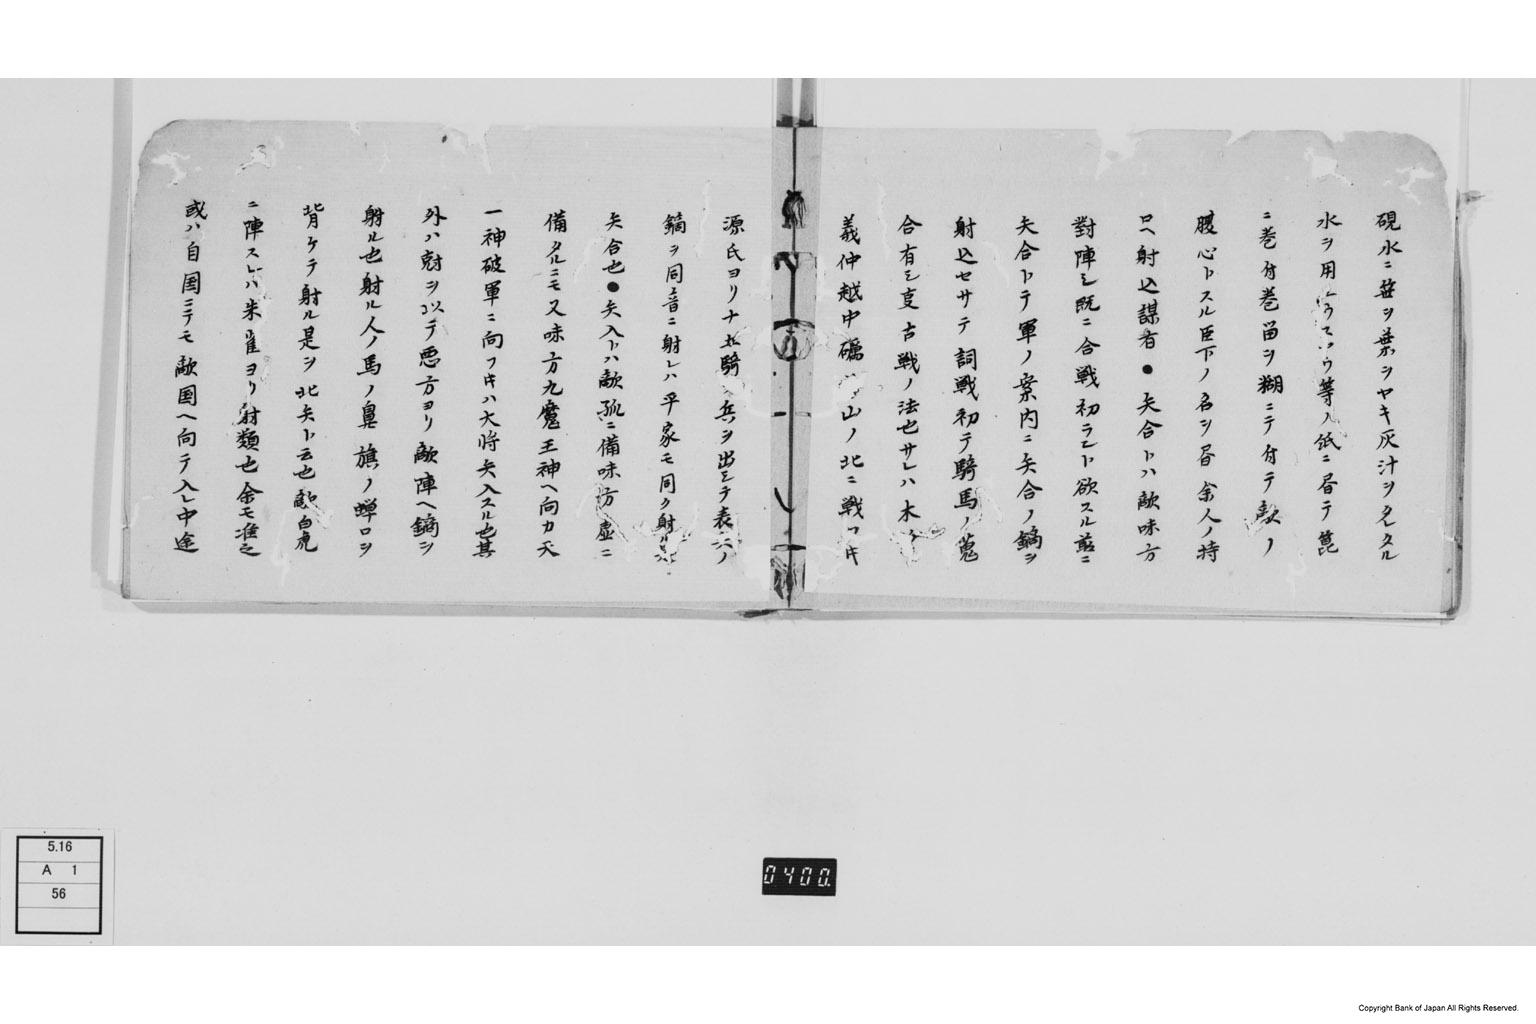 硯水ニ笹ヲ葉ヲヤキ灰汁ヲタレタル
水ヲ用 等ノ紙ニ書テ箆
ニ巻付巻留ヲ糊ニテ付テ敵ノ
腹心トスル臣下ノ名ヲ書余人ノ持
口ヘ射込謀有●矢合トハ敵味方
對陣シ既ニ合戦初ラント欲スル前ニ
矢合トテ軍ノ案内ニ矢合ノ鏑ヲ
射込セサテ詞戦初テ騎馬ノ
合有シ支古戦ノ法也サレハ木
義仲越中礪 山ノ北ニ戦フ時
源氏ヨリナ 騎 兵ヲ出シテ表 ノ
鏑ヲ同音ニ射レハ平家モ同ク射
矢合也●矢入トハ敵孤ニ備味方虚ニ
備タルニモ又味方九魔王神ヘ向カ天
一神破軍ニ向フ時ハ大将矢入スル也其
外ハ尅ヲ以テ悪方ヨリ敵陣ヘ鏑ヲ
射ル也射ル人ノ馬ノ鼻旗ノ蝉口ヲ
背ケテ射ル是ヲ北矢ト云也敵白虎
ニ陣スレハ朱雀ヨリ射類也余モ准之
或ハ自国ニテモ敵国ヘ向テ入レ中途
5.16
A 1
56
0400.
Copyright Bank of Japan All Rights Reserved.